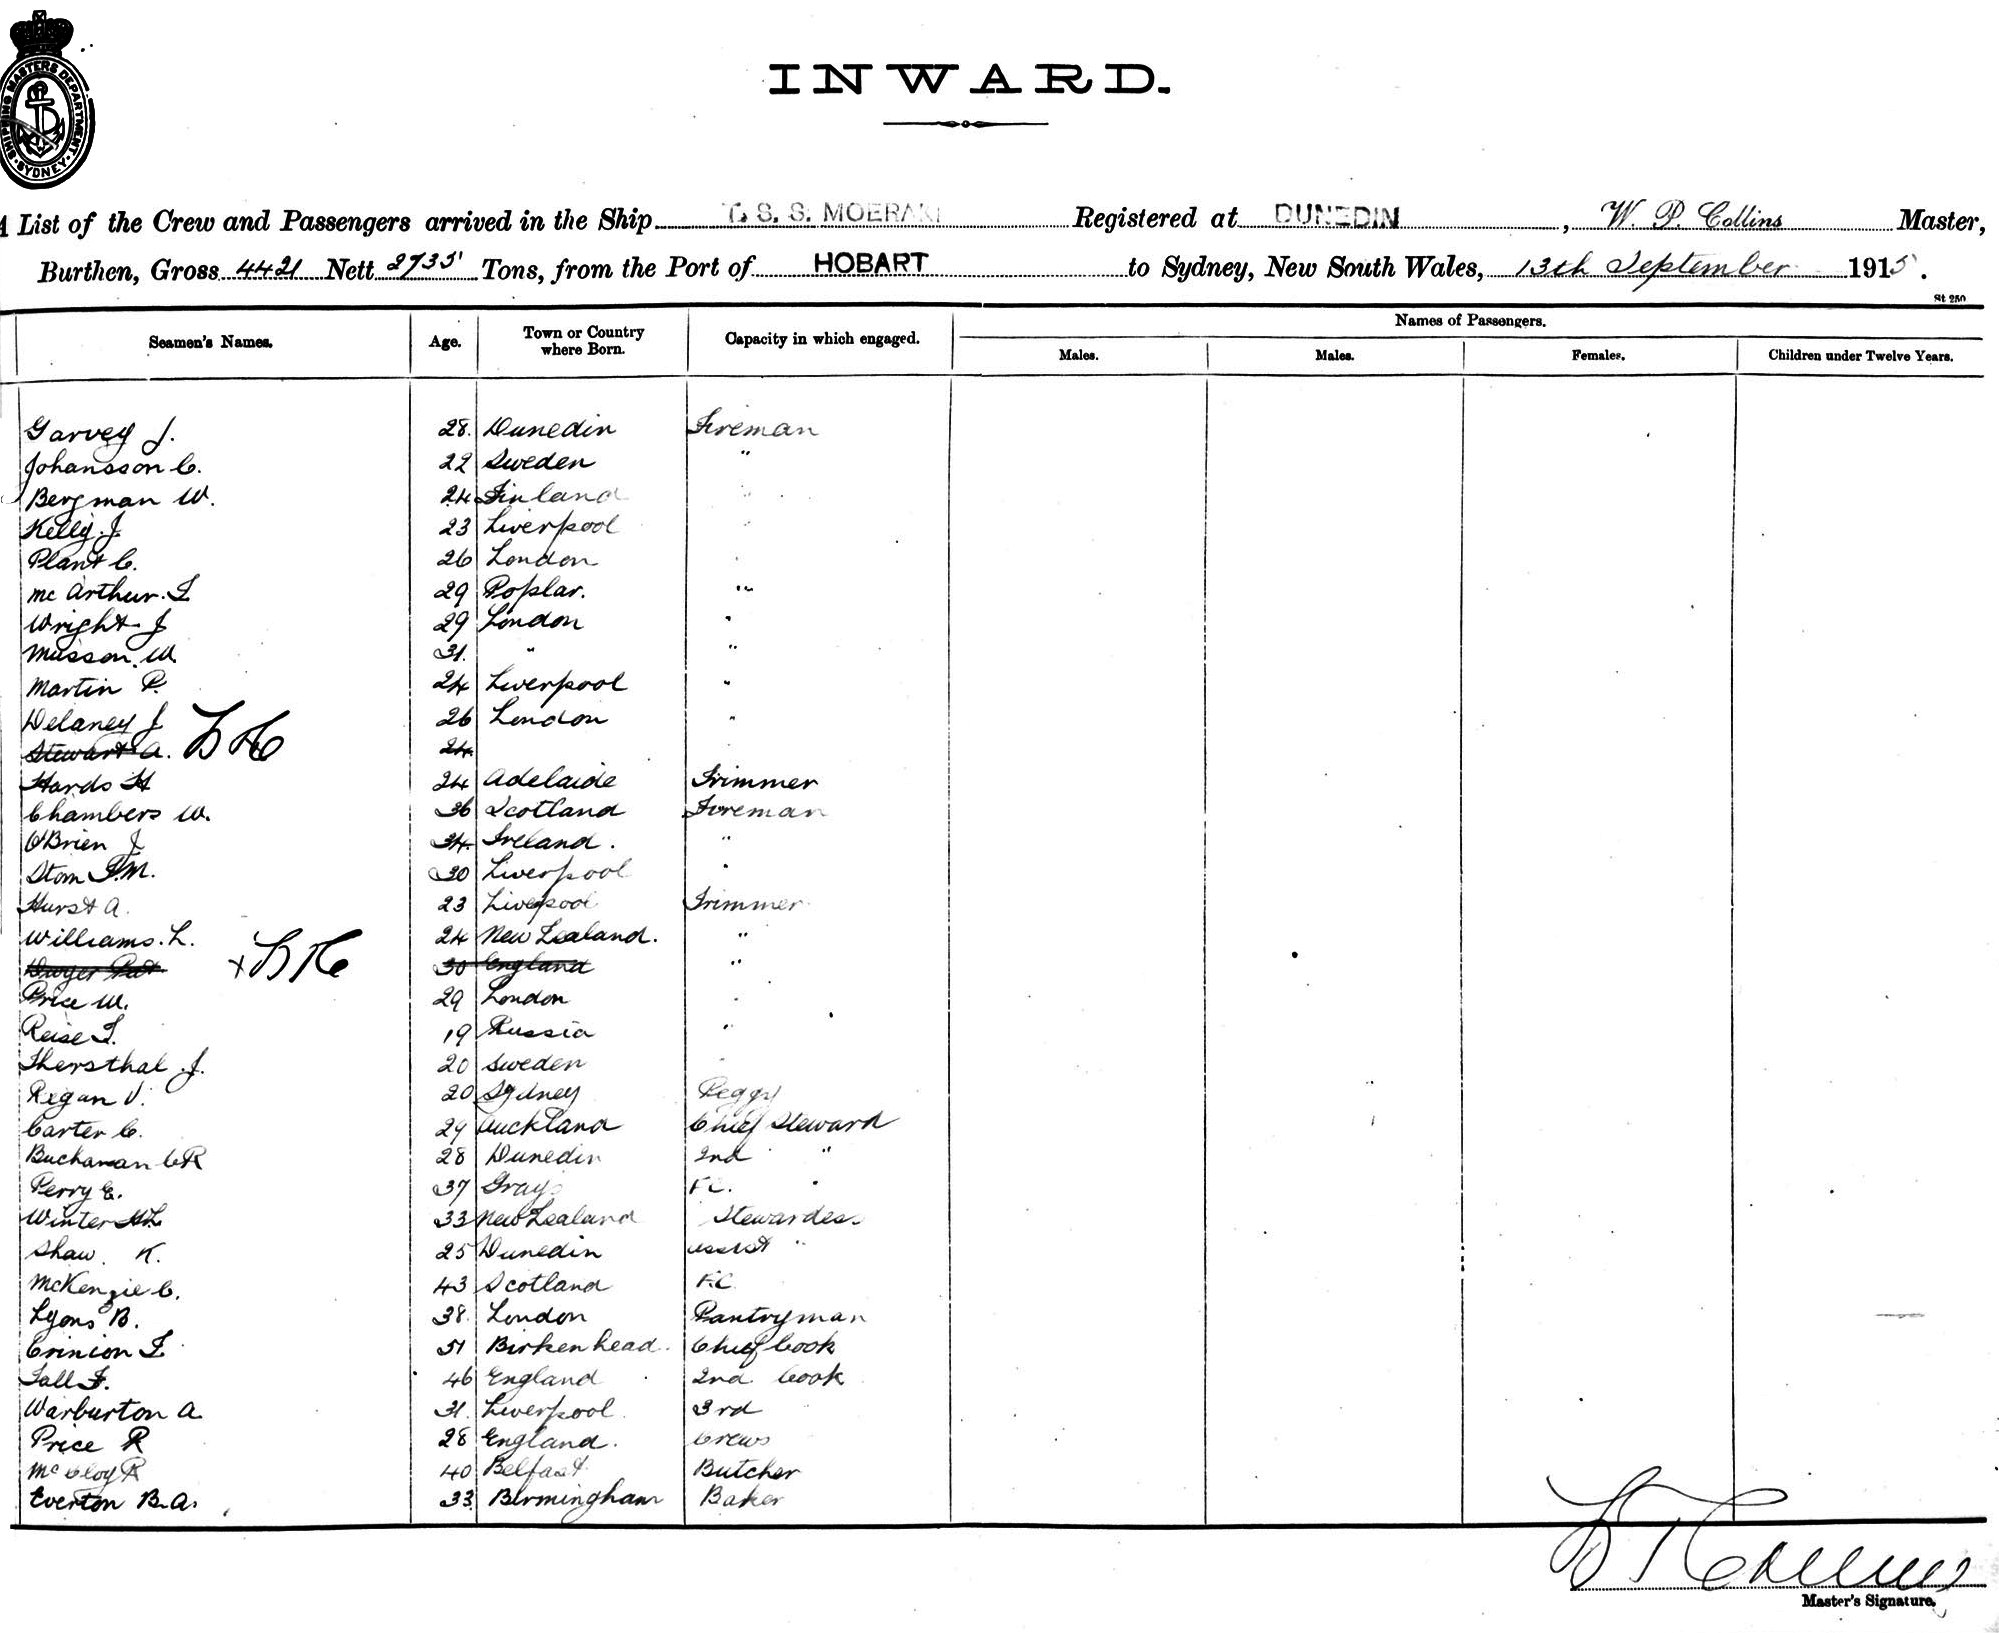 SHIPPING MASTERS DEPARTMENT · SYDNEY ·
INWARD.
A List of the Crew and Passengers arrived in the Ship T. S. S. MOERAKI Registered at DUNEDIN, W. P. Collins Master,
Burthen, Gross 4421 Nett 2735 Tons, from the Port of HOBART to Sydney, New South Wales, 13th September 1915.
St 250
Seamen's Names. Age. Town or Country where Born. Capacity in which engaged. Names of Passengers.
Males. Males. Females. Children under Twelve Years.
Garvey J. 28. Dunedin Fireman
Johansson C. 22 Sweden "
Bergman W. 24 Finland "
Kelly. J 23 Liverpool "
Plant C. 26 London "
Mc Arthur. F 29 Poplar. "
Wright J 29 London "
Musson. W. 31. " "
Martin P. 24 Liverpool "
Delaney J 26 London "
Stewart A. 24.
Hards H 24 Adelaide Trimmer
Chambers W. 36 Scotland Foreman
O'Brien J 34. Ireland. "
Stom P.M. 30 Liverpool "
Hurst A. 23 Liverpool Trimmer
Williams. L. 24 New Zealand. "
Dwyer Pat 30 England "
Price W. 29 London "
Reise F. 19 Russia "
Thersthal J. 20 Sweden "
Regan J. 20 Sydney Peggy
Carter C. 29 Auckland Chief Steward
Buchanan CR 28 Dunedin 2nd "
Perry E. 37 Grays F.C. "
Winter 33 New Zealand Stewardess
Shaw. K. 25 Dunedin Assist "
McKenzie C. 43 Scotland F.C.
Lyons B. 38. London Pantryman
Crinion F 51 Birkenhead. Chief Cook
Tall F. 46 England 2nd Cook
Warburton A 31. Liverpool 3rd
Price R 28 England. Crews
McCloy R 40 Belfast Butcher
Everton B.A. 33. Birmingham Baker
Master's Signature.